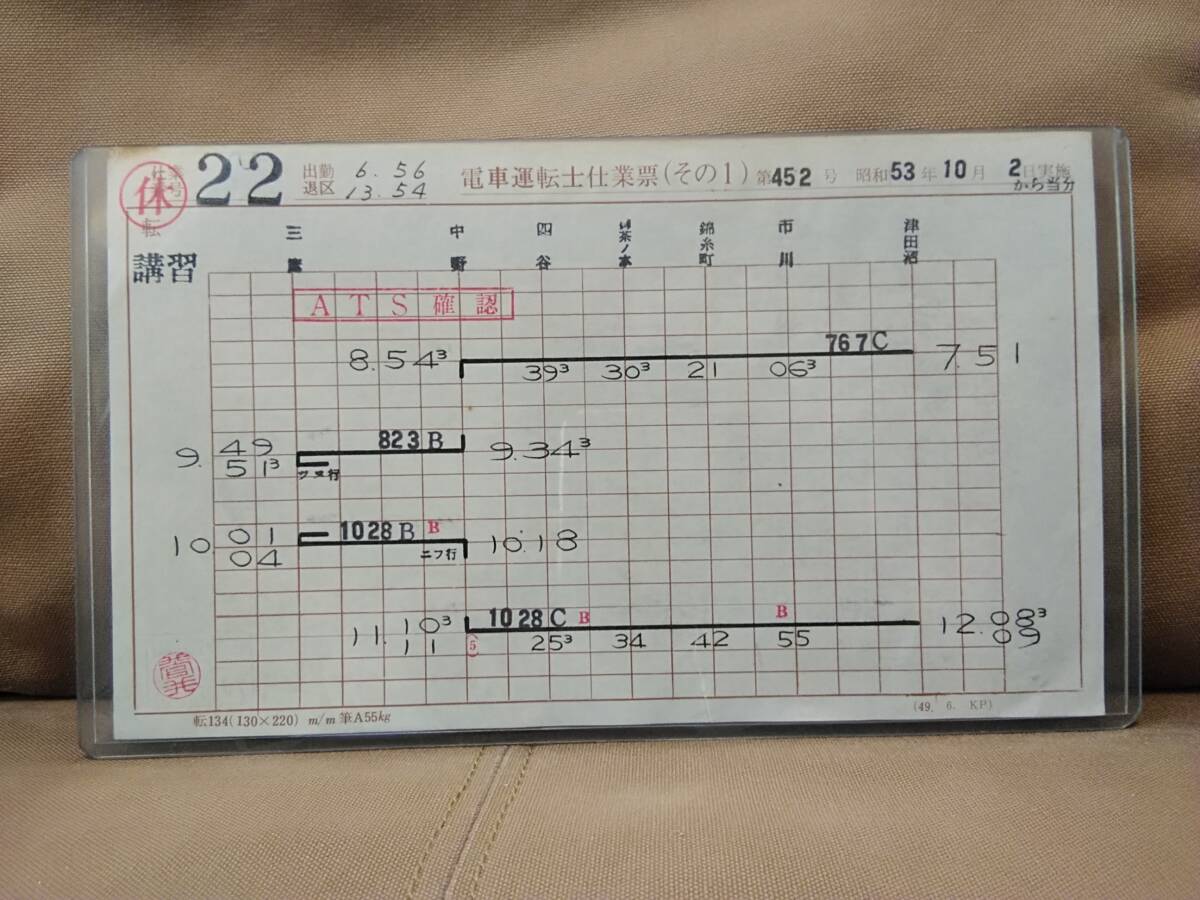 仕業番号 22 出勤 6.56 退区 13.54 電車運転士仕業票(その1) 第452号 昭和53年10月2日実施から当分
休
転
講習
三鷹 中野 四谷 御茶ノ水 錦糸町 市川 津田沼
ATS確認
767C
8.54³ 39³ 30³ 21 06³ 7.51
823B
9. 49 51³ 9.34³
ツヌ行
1028B B
10 01 04 10.18
ニフ行
1028C B B
11.10³ 11 5 25³ 34 42 55 12.08³ 09
転134(130×220) m/m 筆A55kg
(49. 6. KP)